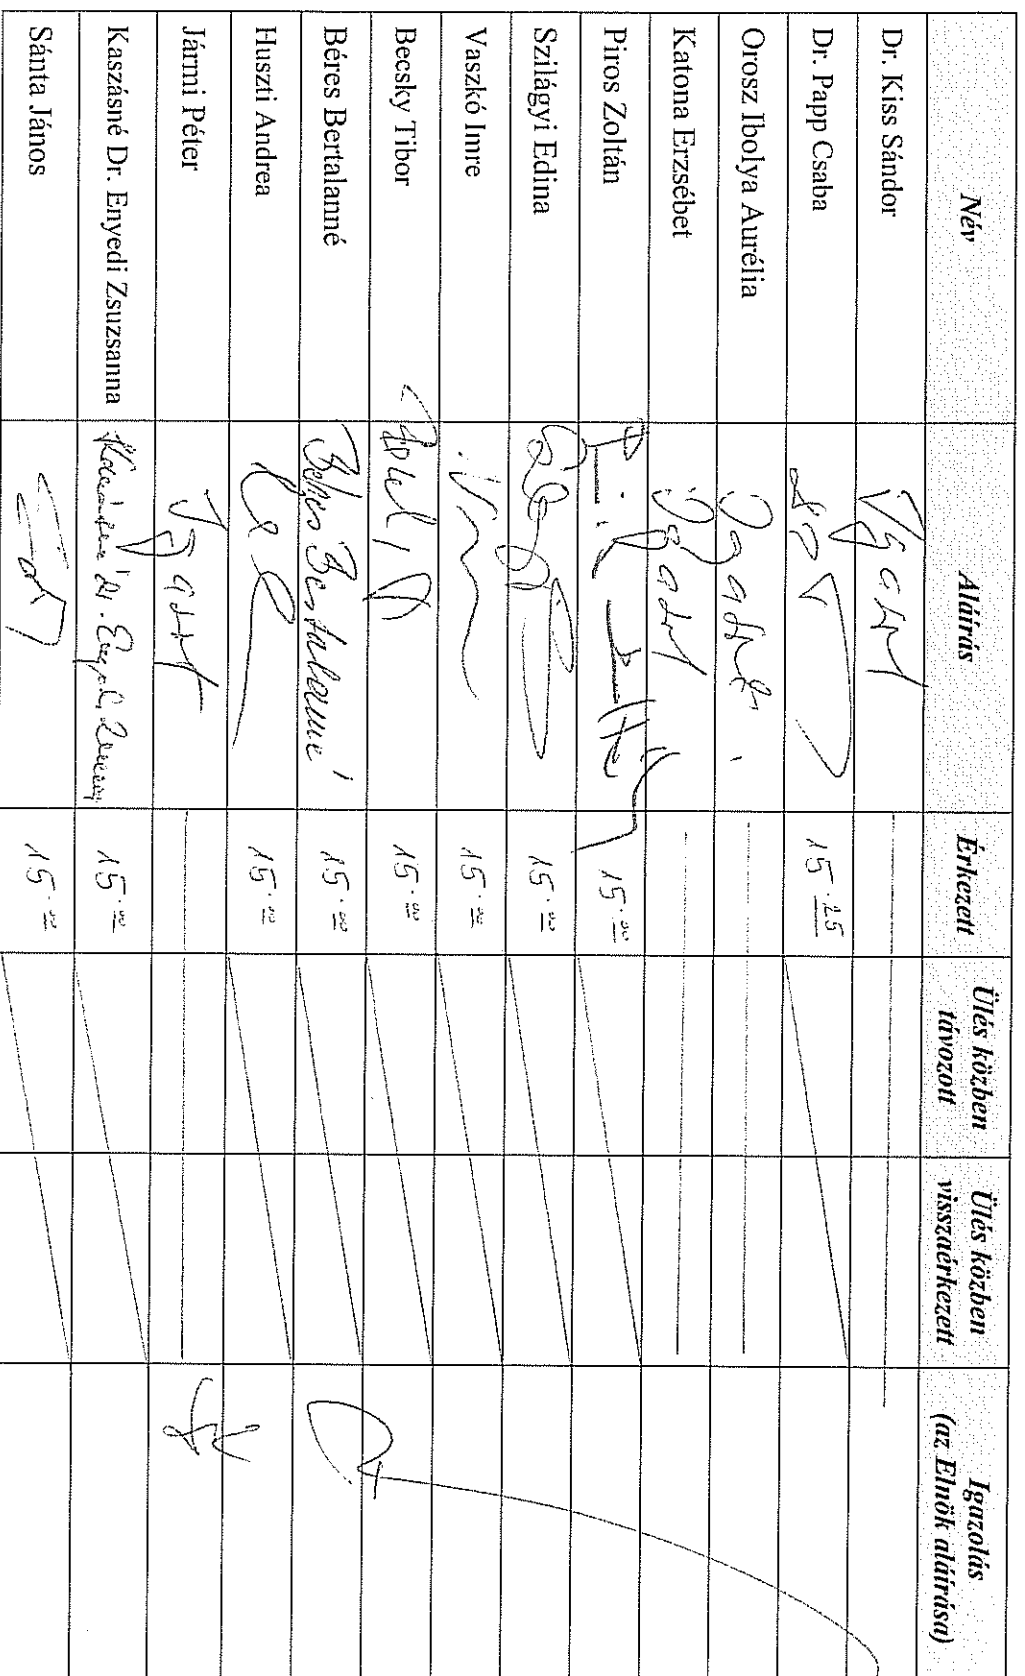 Név Aláírás Érkezett Ülés közben távozott Ülés közben visszaérkezett Igazolás (az Elnök aláírása)
Dr. Kiss Sándor Igazolt
Dr. Papp Csaba 15.25
Orosz Ibolya Aurélia Igazolt
Katona Erzsébet Igazolt
Piros Zoltán 15.00
Szilágyi Edina 15.00
Vaszkó Imre 15.00
Becsky Tibor 15.00
Béres Bertalanné Béres Bertalanné 15.00
Huszti Andrea 15.00
Jármi Péter Igazolt
Kaszásné Dr. Enyedi Zsuzsanna 15.00
Sánta János 15.00